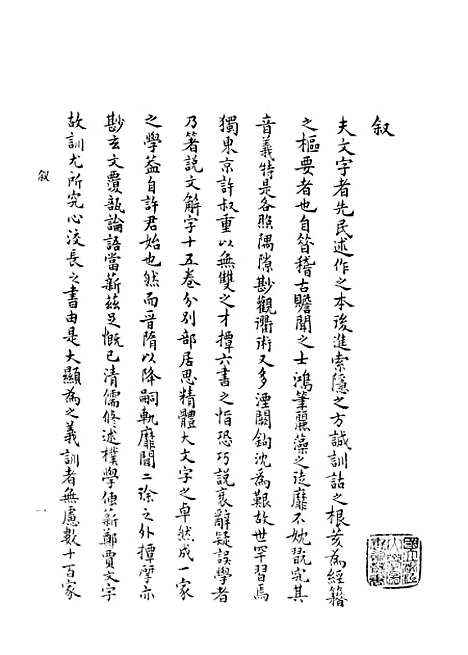 叙
夫文字者先民述作之本後進索隱之方誠訓詁之根荄為經籍
之樞要者也自昔稽古贍聞之士鴻筆麗藻之徒靡不妉翫究其
音義特是各照隅隙尠觀衢術又多湮闕鉤沈為艱故世罕習焉
獨東京許叔重以無雙之才撢六書之恉恐巧說衺辭疑誤學者
乃箸說文解字十五卷分別部居思精體大文字之卓然成一家
之學葢自許君始也然而晉隋以降嗣軌靡聞二徐之外撢擘亦
尠玄文覆瓿論語當薪茲足慨已清儒修述樸學傳薪鄭賈文字
故訓尤所究心洨長之書由是大顯為之義訓者無慮數十百家
叙
一